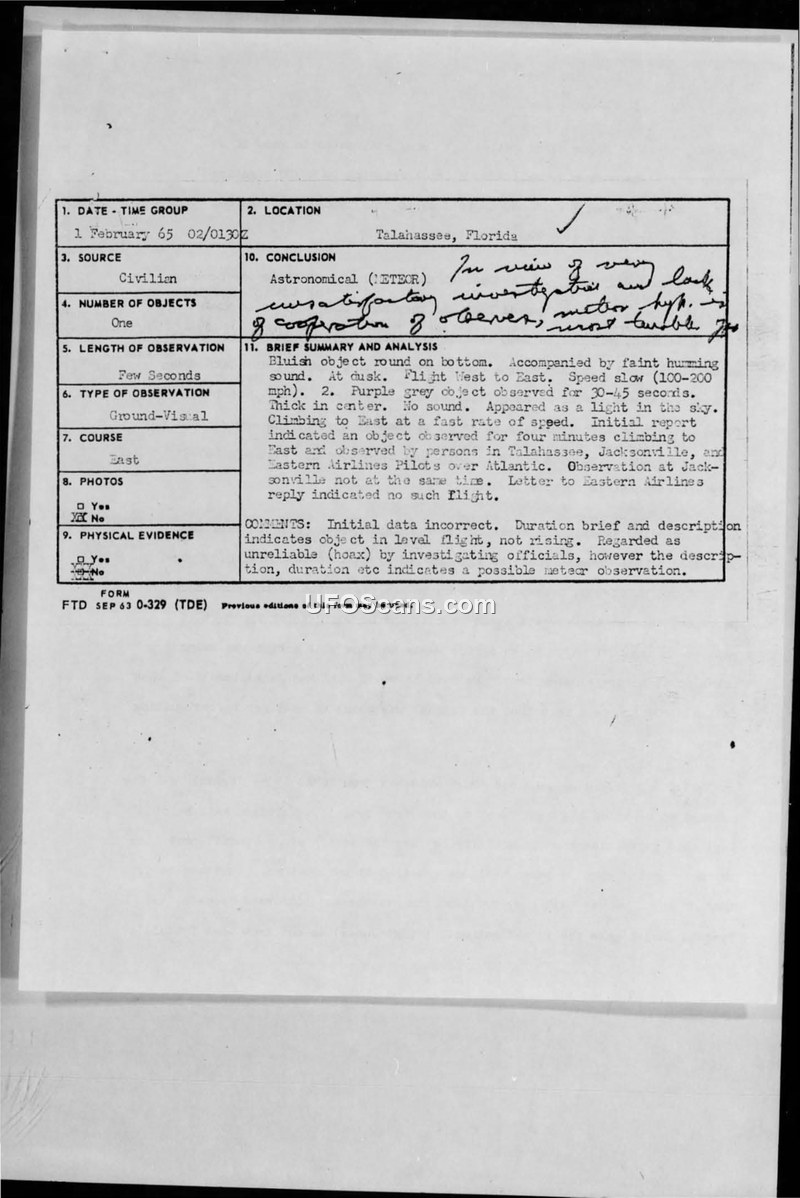 1. DATE - TIME GROUP
1 February 65 02/0130Z
2. LOCATION
Talahassee, Florida
3. SOURCE
Civilian
10. CONCLUSION
Astronomical (METEOR)
In view of very
unsatisfactory investigation and lack
of cooperation of observer, meteor hyp. is
most
4. NUMBER OF OBJECTS
One
5. LENGTH OF OBSERVATION
Few Seconds
6. TYPE OF OBSERVATION
Ground-Visual
7. COURSE
East
8. PHOTOS
□ Yes
XX No
9. PHYSICAL EVIDENCE
□ Yes
No
11. BRIEF SUMMARY AND ANALYSIS
Bluish object round on bottom. Accompanied by faint humming
sound. At dusk. Flight West to East. Speed slow (100-200
mph). 2. Purple grey object observed for 30-45 seconds.
Thick in center. No sound. Appeared as a light in the sky.
Climbing to East at a fast rate of speed. Initial report
indicated an object observed for four minutes climbing to
East and observed by persons in Talahassee, Jacksonville, and
Eastern Airlines Pilots over Atlantic. Observation at Jack-
sonville not at the same time. Letter to Eastern Airlines
reply indicated no such flight.
COMMENTS: Initial data incorrect. Duration brief and description
indicates object in level flight, not rising. Regarded as
unreliable (hoax) by investigating officials, however the descrip-
tion, duration etc indicates a possible meteor observation.
FORM
FTD SEP 63 0-329 (TDE) Previous editions of this form
UFOScans.com